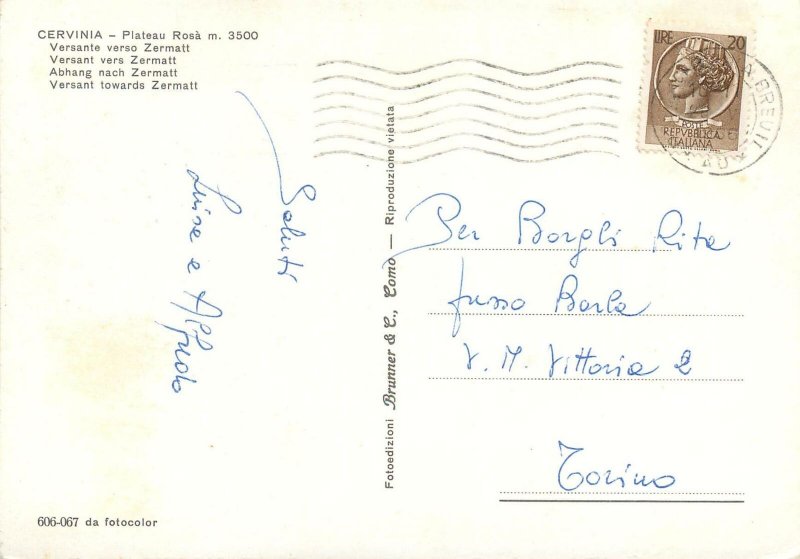 CERVINIA – Plateau Rosà m. 3500
Versante verso Zermatt
Versant vers Zermatt
Abhang nach Zermatt
Versant towards Zermatt
Saluti
Luisa e Alfredo
606-067 da fotocolor
Fotoedizioni Brunner & C., Como — Riproduzione vietata
LIRE 20
POSTE
REPVBBLICA
ITALIANA
BREUIL
Per Borgli Rita
presso Barla
V. M. Vittoria 2
Torino